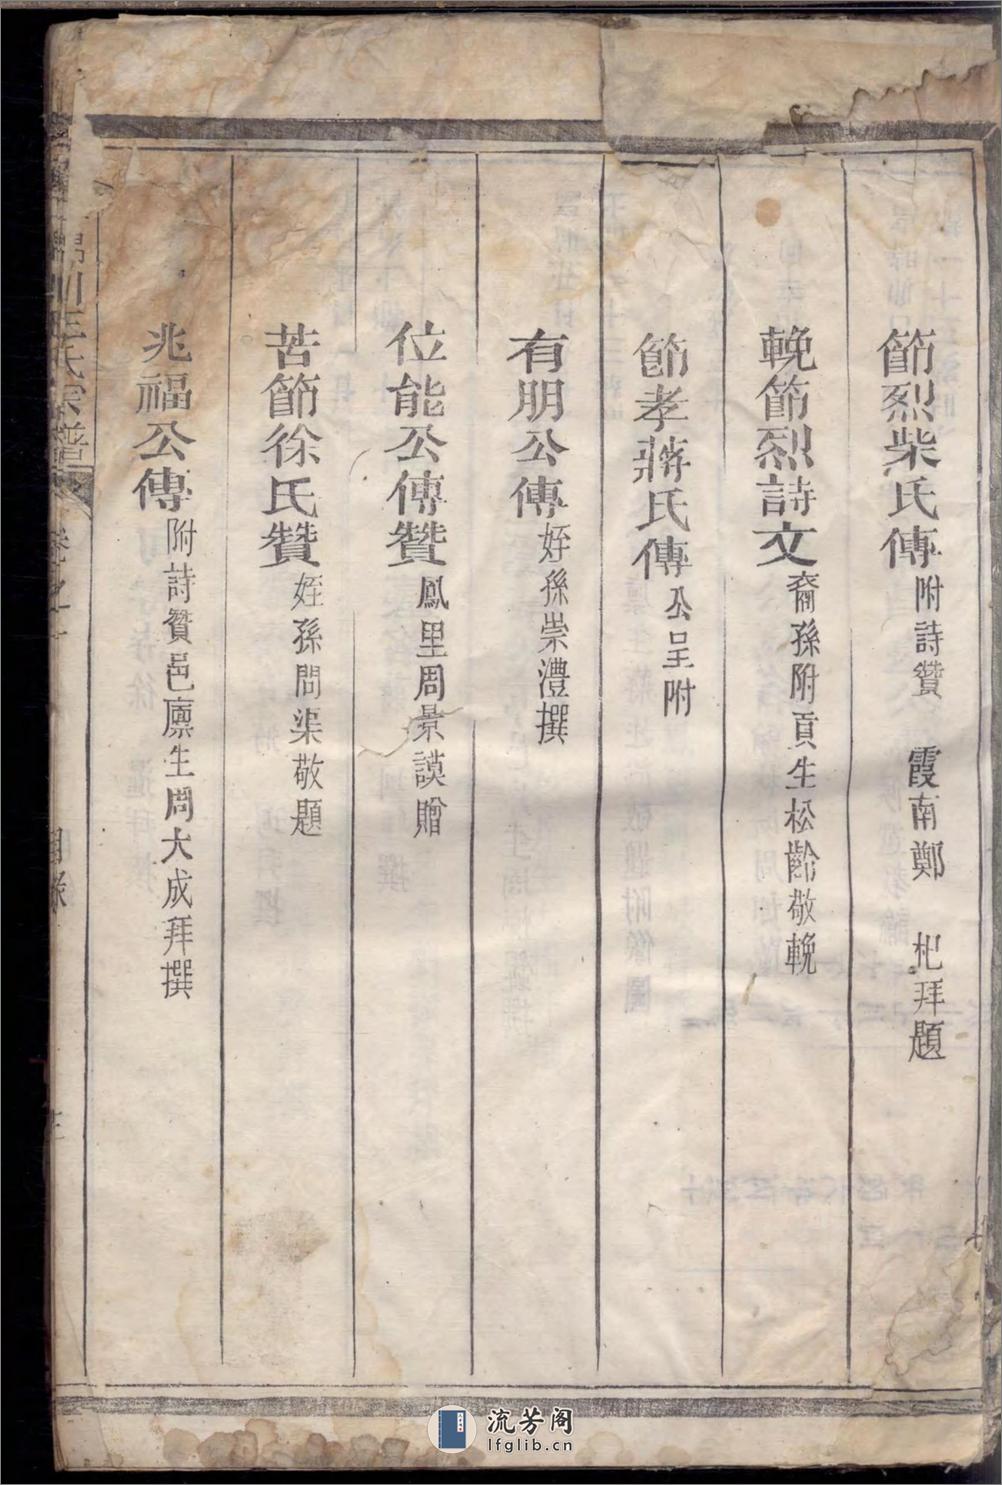 節烈柴氏傳附詩贊 霞南鄭 杞拜題
輓節烈詩文裔孫附貢生松齡敬輓
節孝蔣氏傳公呈附
有朋公傳姪孫崇澧撰
位能公傳贊鳳里周景謨贈
苦節徐氏贊姪孫問渠敬題
兆福公傳附詩贊邑廩生周大成拜撰
川王氏宗譜 卷之一 目錄
流芳阁
lfglib.cn